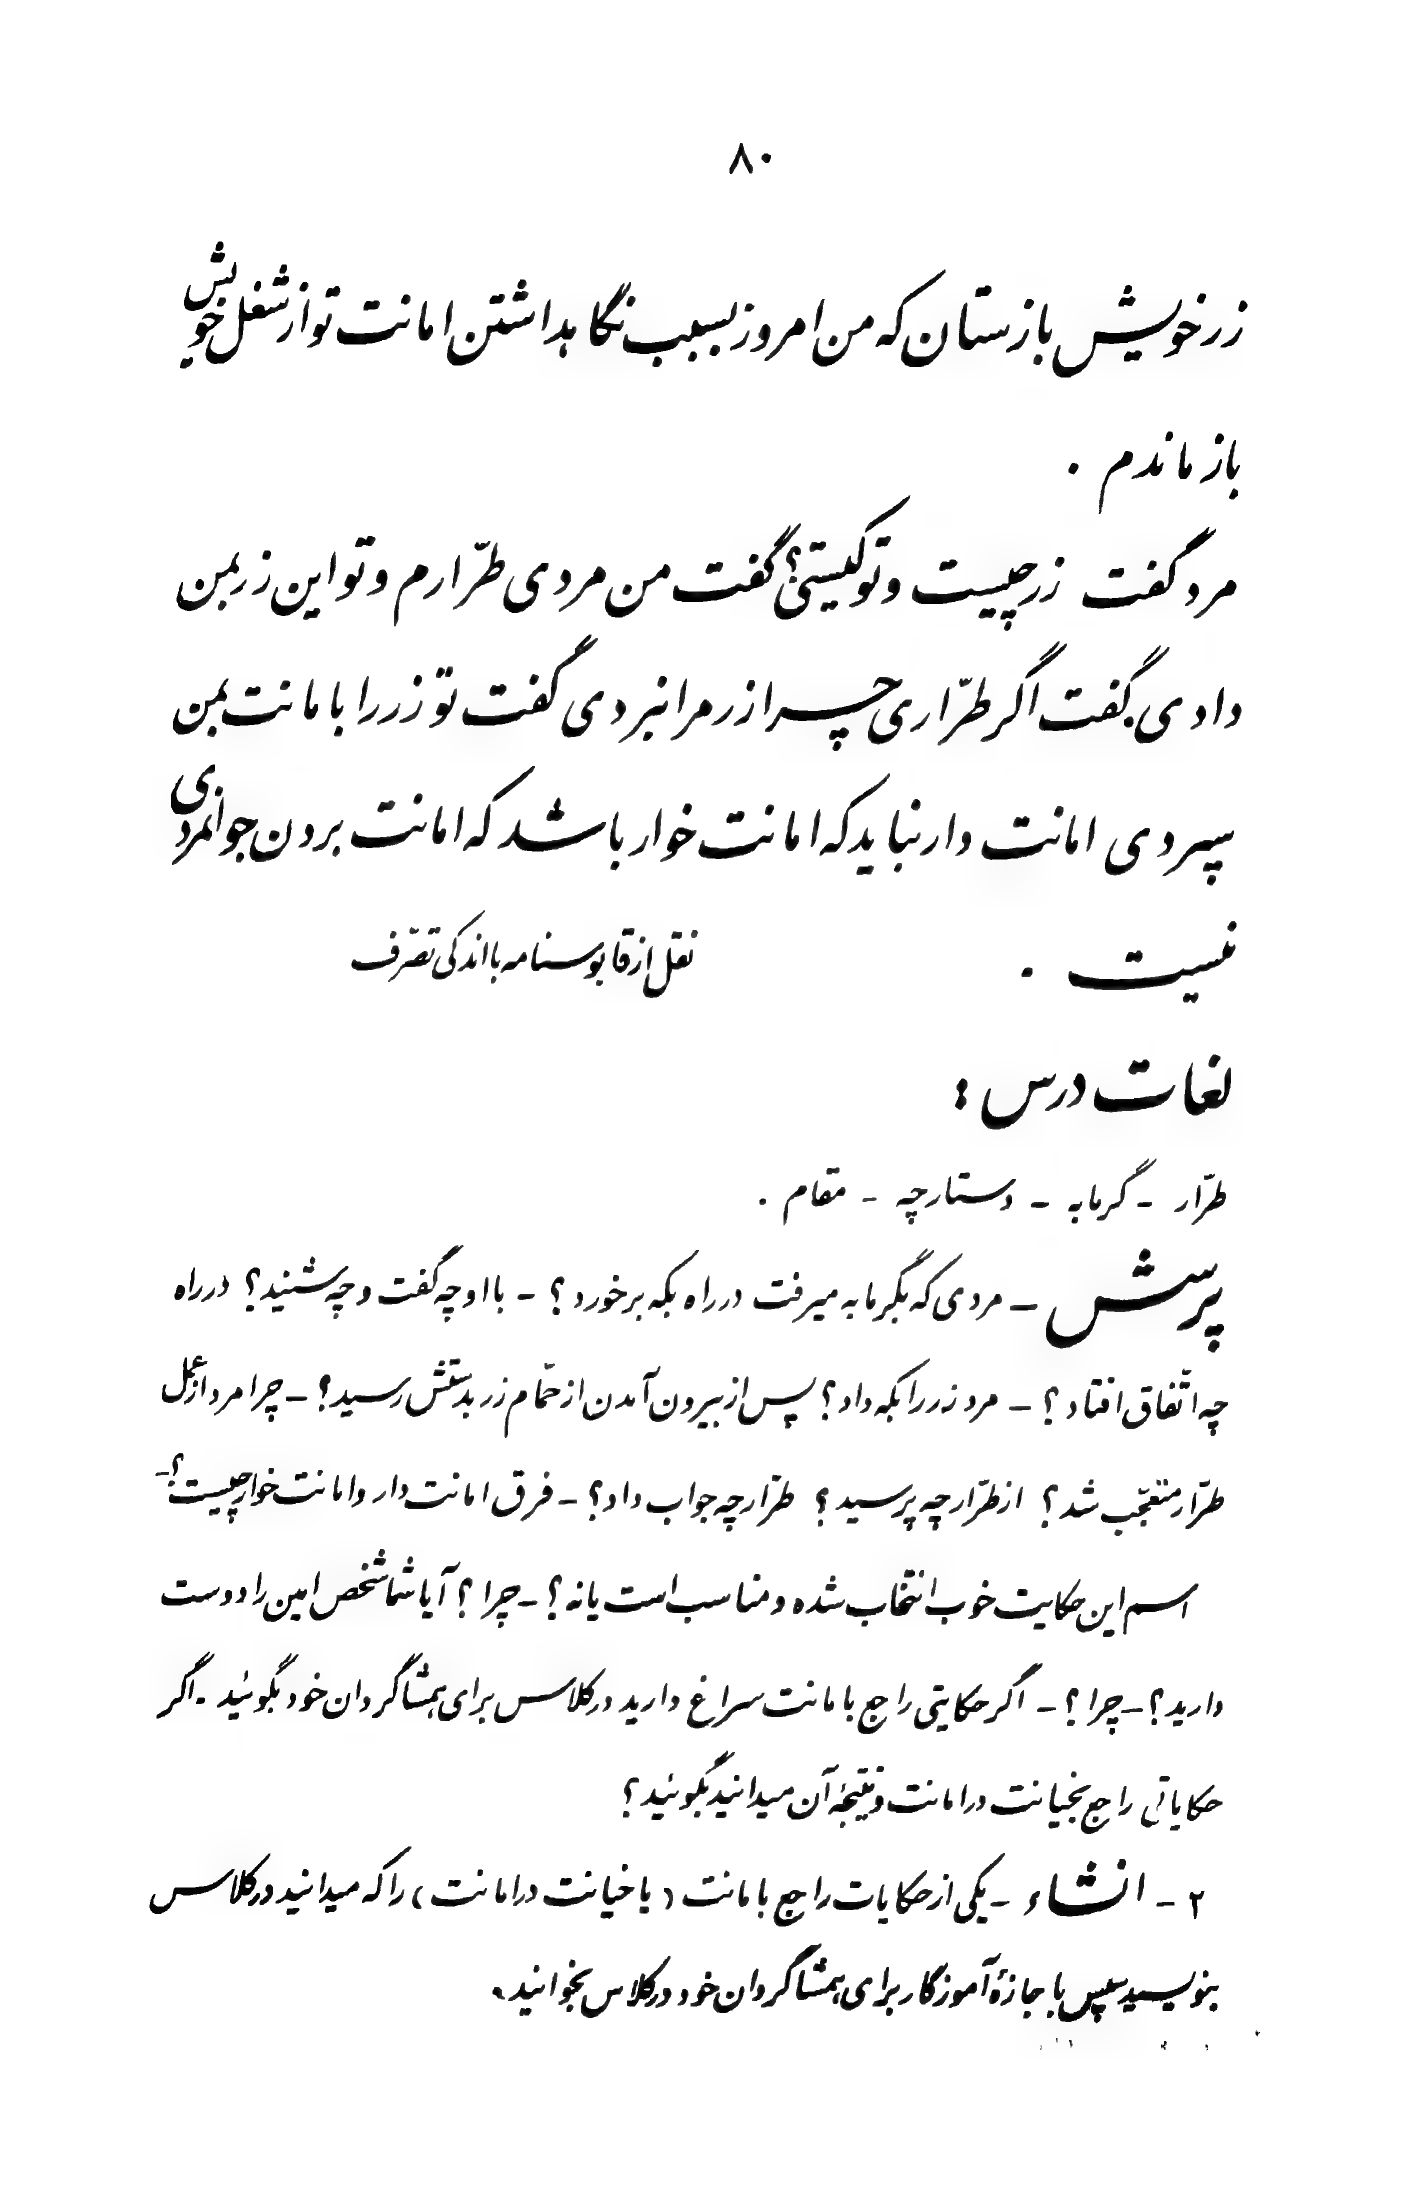 ۸۰
زر خویش بازستان که من امروز بسبب نگاهداشتن امانت تو از شغل خویش
باز ماندم .
مرد گفت زر چیست و تو کیستی؟ گفت من مردی طرّارم و تو این زر بمن
دادی. گفت اگر طرّاری چرا زر مرا نبردی گفت تو زر را بامانت بمن
سپردی امانت دار نباید که امانت خوار باشد که امانت بردن جوانمردی
نیست . نقل از قابوسنامه با اندکی تصرّف
لغات درس :
طرّار - گرمابه - دستارچه - مقام .
پرسش - مردی که بگرمابه میرفت در راه بکه برخورد؟ - با او چه گفت و چه شنید؟ در راه
چه اتّفاق افتاد؟ - مرد زر را بکه داد؟ پس از بیرون آمدن از حمّام زر بدستش رسید؟ - چرا مرد از عمل
طرّار متعجّب شد؟ از طرّار چه پرسید؟ طرّار چه جواب داد؟ - فرق امانت دار و امانت خوار چیست؟ -
اسم این حکایت خوب انتخاب شده و مناسب است یا نه؟ - چرا؟ آیا شما شخص امین را دوست
دارید؟ - چرا؟ - اگر حکایتی راجع بامانت سراغ دارید در کلاس برای همشاگردان خود بگوئید - اگر
حکایاتی راجع بخیانت در امانت و نتیجهٔ آن میدانید بگوئید؟
۲ - انشاء - یکی از حکایات راجع بامانت (یا خیانت در امانت) را که میدانید در کلاس
بنویسید سپس باجازهٔ آموزگار برای همشاگردان خود در کلاس بخوانید.